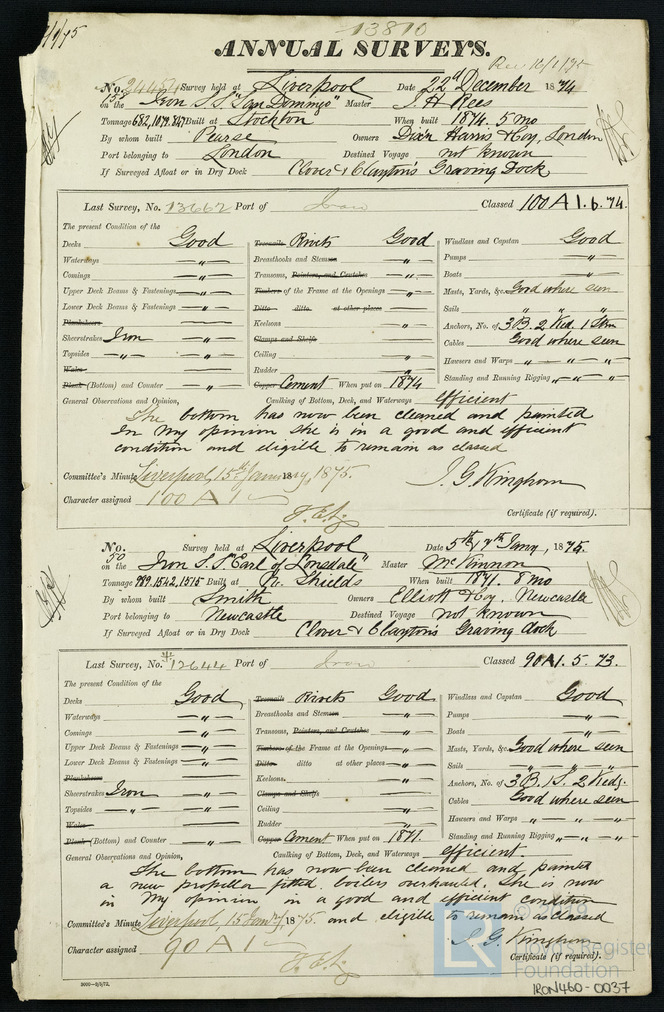 13810
ANNUAL SURVEYS.
Rec 16/1/75
No. 24454 Survey held at Liverpool Date 22d December 1874
on the Iron S.S. "San Domingo" Master J. H. Rees
Tonnage 682, 1079, 847 Built at Stockton When built 1874. 5 mo
By whom built Pearse Owners Dixon Harris & Coy, London
Port belonging to London Destined Voyage not known
If Surveyed Afloat or in Dry Dock Clover & Clayton's Graving Dock
Last Survey, No. 13662 Port of Iron Classed 100 A 1. 6. 74.
The present Condition of the
Decks Good Treenails Rivets Good Windlass and Capstan Good
Waterways —„— Breasthooks and Stemson —„— Pumps —„—
Comings —„— Transoms, Pointers, and Crutches —„— Boats —„—
Upper Deck Beams & Fastenings —„— Timbers of the Frame at the Openings —„— Masts, Yards, &c. Good where seen
Lower Deck Beams & Fastenings —„— Ditto ditto at other places Sails „ „ „
Planksheers Keelsons —„— Anchors, No. of 3 B. 2 Ked. 1 Strm
Sheerstrakes Iron Clamps and Shelfs Cables Good where seen
Topsides —„— —„— Ceiling —„— Hawsers and Warps —„—„—„—
Wales Rudder —„— Standing and Running Rigging „ — „ — „
Plank (Bottom) and Counter —„— Copper Cement When put on 1874
General Observations and Opinion, Caulking of Bottom, Deck, and Waterways efficient
The bottom has now been cleaned and painted
In my opinion she is in a good and efficient
condition and eligible to remain as classed
Committee's Minute Liverpool, 15th January, 1875.
J. G. Kinghom
Character assigned 100 A 1
Certificate (if required).
No. Survey held at Liverpool Date 5th & 7th Jany, 1875.
on the Iron S.S. "Earl of Lonsdale" Master McKinnon
Tonnage 989. 1542, 1515 Built at N. Shields When built 1871. 8 mo
By whom built Smith Owners Elliott & Coy. Newcastle
Port belonging to Newcastle Destined Voyage not known
If Surveyed Afloat or in Dry Dock Clover & Clayton's Graving dock
Last Survey, No. 12644 Port of Iron Classed 90 A 1. 5. 73.
The present Condition of the
Decks Good Treenails Rivets Good Windlass and Capstan Good
Waterways —„— Breasthooks and Stemson —„— Pumps —„—
Comings —„— Transoms, Pointers, and Crutches —„— Boats —„—
Upper Deck Beams & Fastenings —„— Timbers of the Frame at the Openings —„— Masts, Yards, &c. Good where seen
Lower Deck Beams & Fastenings —„— Ditto ditto at other places —„— Sails —„— „ „
Planksheers Keelsons. —„— Anchors, No. of 3 B. 1 S. 2 Keds.
Sheerstrakes Iron Clamps and Shelfs Cables Good where seen
Topsides —„— —„— Ceiling —„— Hawsers and Warps —„—„—„—
Wales Rudder —„— Standing and Running Rigging „ — „ — „
Plank (Bottom) and Counter —„— Copper Cement When put on 1871.
General Observations and Opinion, Caulking of Bottom, Deck, and Waterways efficient.
The bottom has now been cleaned and painted
a new propeller fitted, boilers overhauled. She is now
in my opinion in a good and efficient condition
Committee's Minute Liverpool, 15 Jany, 1875. and eligible to remain as classed
J. G. Kinghom
Character assigned 90 A 1
Certificate (if required).
© 2019
Lloyd's Register
Foundation
IRON460-0037